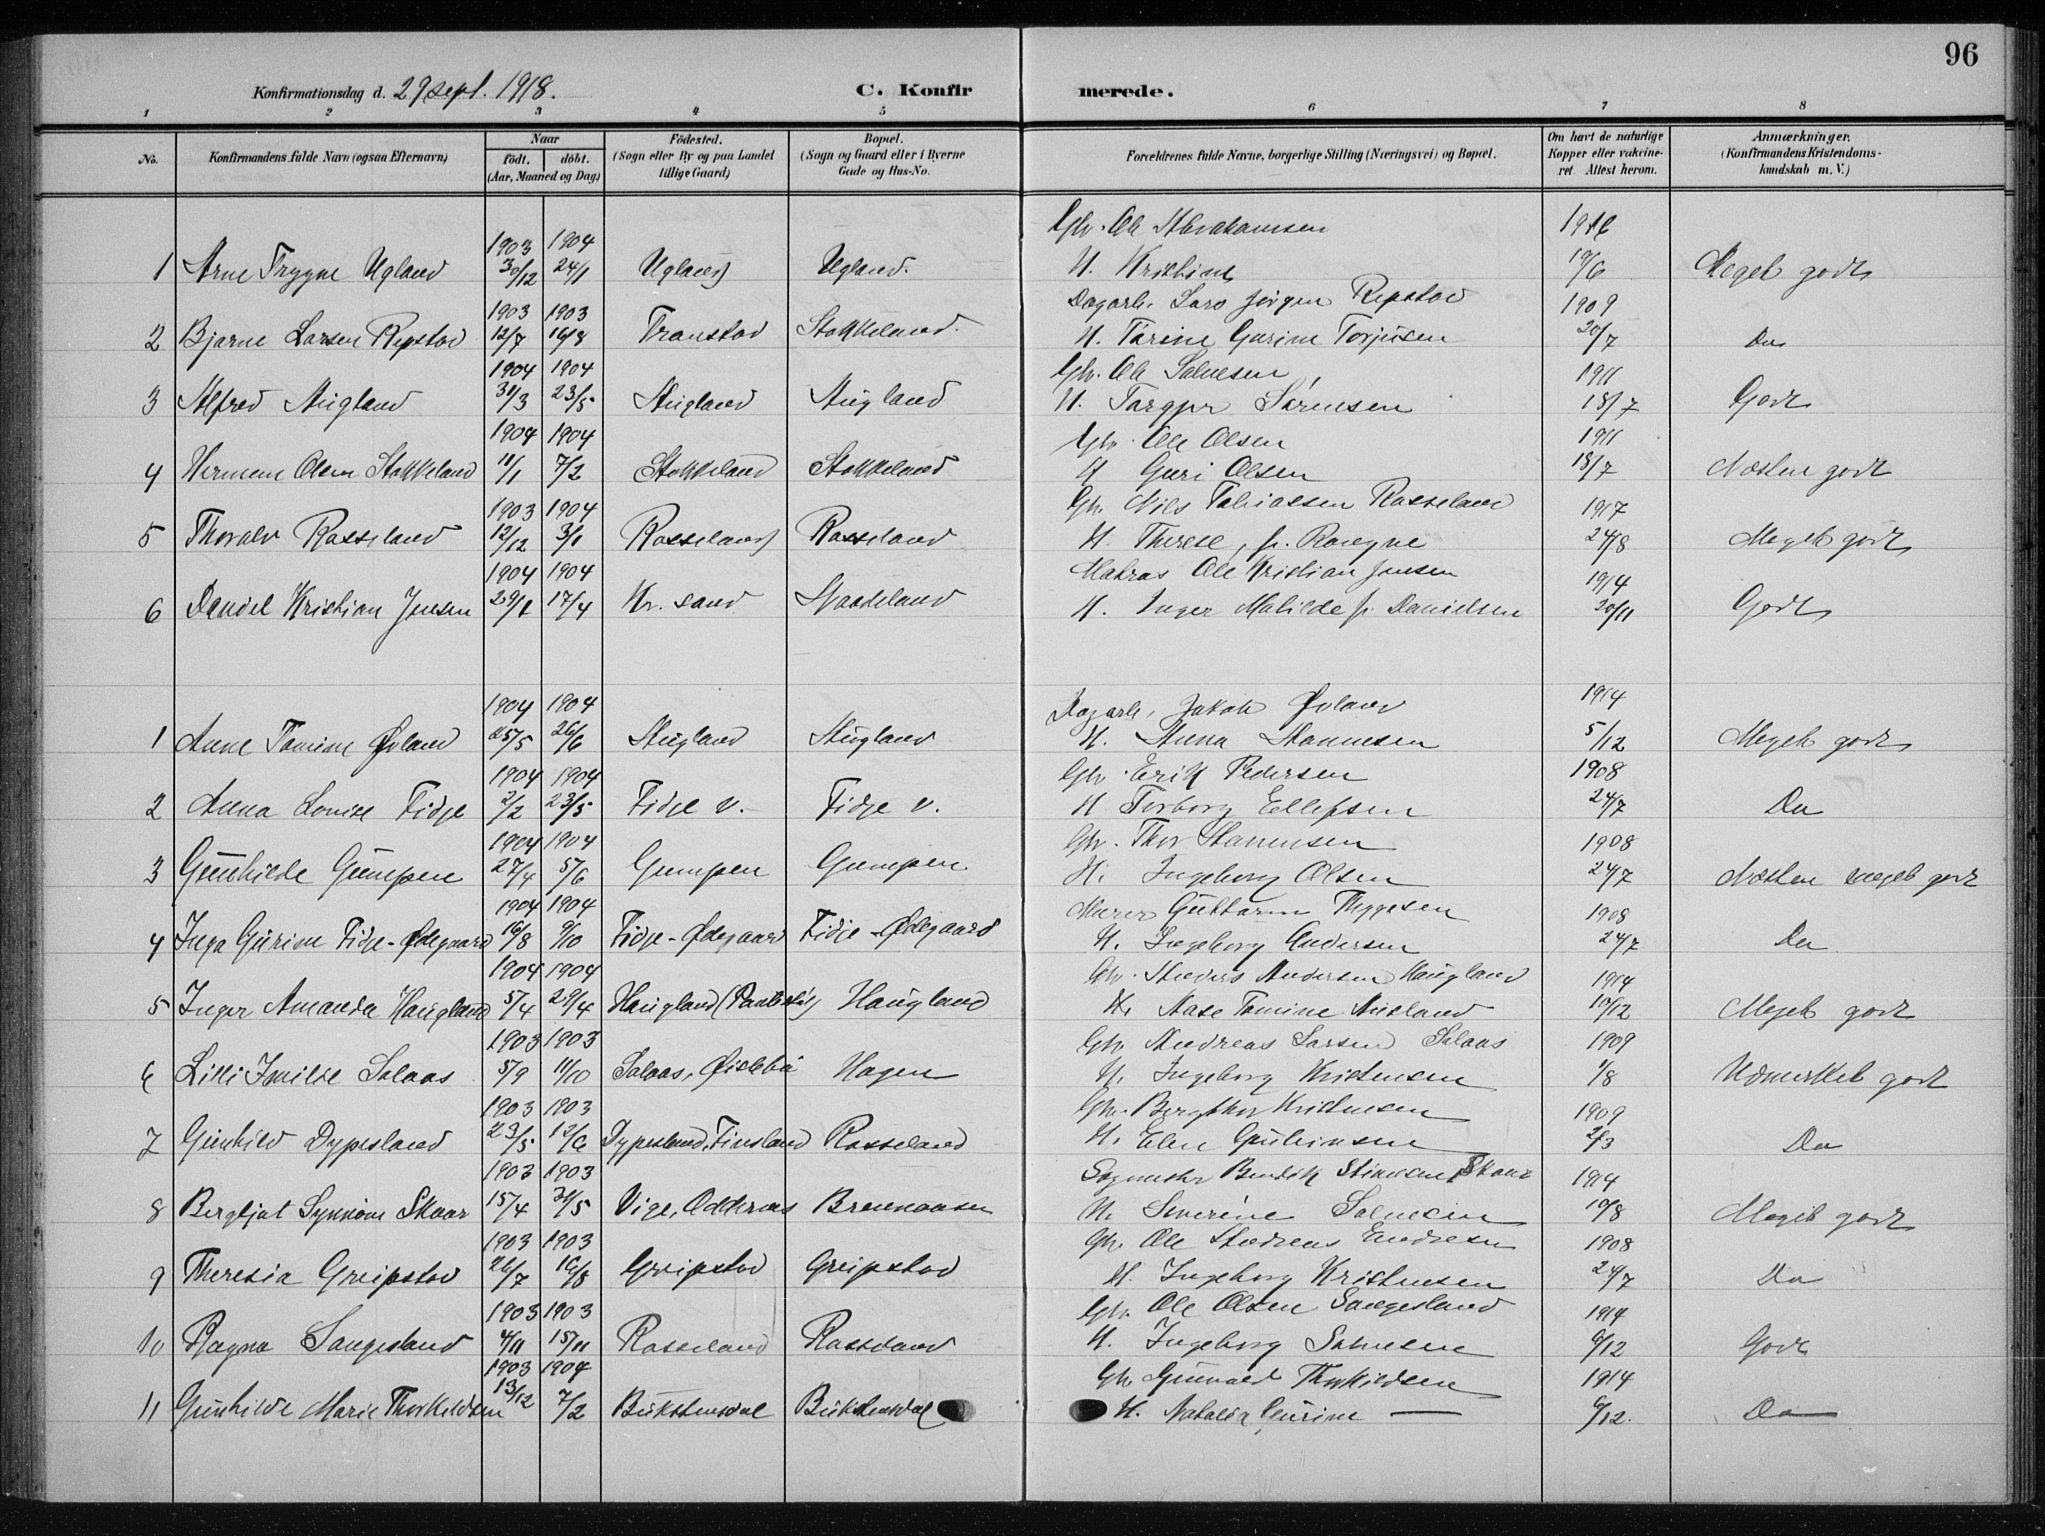 96
Konfirmationsdag d. 29 sept. 1918. C. Konfirmerede.
1 2 3 4 5 6 7 8
No. Konfirmandens fulde Navn (ogsaa Efternavn) Naar födt. döbt. (Aar, Maaned og Dag) Födested. (Sogn eller By og paa Landet tillige Gaard) Bopæl. (Sogn og Gaard eller i Byerne Gade og Hus-No. Forældrenes fulde Navne, borgerlige Stilling (Næringsvei) og Bopæl. Om havt de naturlige Kopper eller vakcineret Attest herom. Anmærkninger. (Konfirmandens Kristendomskundskab m. V.)
1903 1904 Gbr. Ole Abrahamsen 1916
1 Arne Trygve Ugland 30/12 24/1 Ugland Ugland. H. Kristine 10/6 Meget godt
1903 1903 Dagarb. Lars Jörgen Repstad 1909
2 Bjarne Larsen Repstad 12/7 16/8 Transtad Stokkeland. H. Tarine Gurine Torjusen 20/7 Do
1904 1904 Gbr. Ole Salvesen 1911
3 Alfred Augland 31/3 23/5 Augland Augland H. Torgjer Sörensen 18/7 Godt
1904 1904 Gbr. Ole Olsen 1911
4 Herman Olsen Stokkeland 11/1 7/2 Stokkeland Stokkeland H Guri Olsen 18/7 Næsten godt
1903 1904 Gbr. Nils Tobiassen Rosseland 1917
5 Thoralv Rosseland 12/12 3/1 Rosseland Rosseland H. Therese, f. 24/8 Meget godt
1904 1904 Matros Ole Kristian Jensen 1914
6 Daniel Kristian Jensen 29/1 17/4 Kr. sand H. Inger Matilde f. Danielsen 20/11 Godt
1904 1904 Dagarb. Jakob Øvland 1914
1 Anne Tomine Øvland 25/5 26/6 Augland Augland H. Anna 5/12 Meget godt
1904 1904 Gbr. Erik Pedersen 1908
2 Anna Lovise Fidje 2/2 23/5 Fidje v. Fidje v. H Torborg Ellefsen 24/7 Do
1904 1904 Gbr. Thor 1908
3 Gunhilde Gumpen 27/4 5/6 Gumpen Gumpen H. Ingeborg Olsen 24/7 Næsten meget godt
1904 1904 Murer Guttorm Thygesen 1908
4 Inga Gurine Fidje-Ødegaard 16/8 9/10 Fidje-Ødegaard Fidje-Ødegaard H. Ingeborg Andersen 24/7 Do
1904 1904 Gbr. Anders Andersen Haugland 1914
5 Inger Amanda Haugland 5/4 29/4 Haugland Haugland H. Aase Tomine 10/12 Meget godt
1903 1903 Gbr. Andreas Larsen Solaas 1909
6 Lilli Solaas 5/9 11/10 Solaas, Øislebö Hagen H. Ingeborg Kristensen 1/8 Udmerket godt
1903 1903 Gbr. Bergthor Kristensen 1909
7 Gunhild Dypesland 23/5 12/6 Dypesland, Finsland Rosseland H. Elen 2/3 Do
1903 1903 Sagmester Bendik Skaar 1914
8 Bergljot Synnöve Skaar 15/4 21/5 Vige, Oddernes Brennaasen H. Severine Salvesen 10/8 Meget godt
1903 1903 Gbr. Ole Andreas Endresen 1908
9 Theresia Greipstad 26/7 16/8 Greipstad Greipstad H. Ingeborg Kristensen 24/7 Do
1903 1903 Gbr. Ole Olsen Sangesland 1914
10 Ragna Sangesland 4/11 15/11 Rosseland Rosseland H. Ingeborg Salvesen 6/12 Godt
1903 1904 Gbr Gunvald Thorkildsen 1914
11 Gunhilde Marie Thorkildsen 13/12 7/2 Bukstensdal Bukstensdal H. Natalia Gurine — 6/12. Do